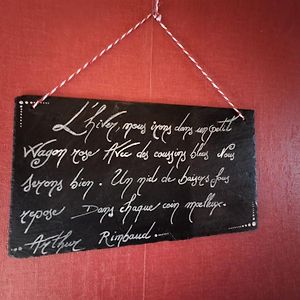 L'hiver, nous irons dans un petit
Wagon rose Avec des coussins bleus Nous
Serons bien. Un nid de Baisers fous
repose Dans chaque coin moelleux.
Arthur Rimbaud